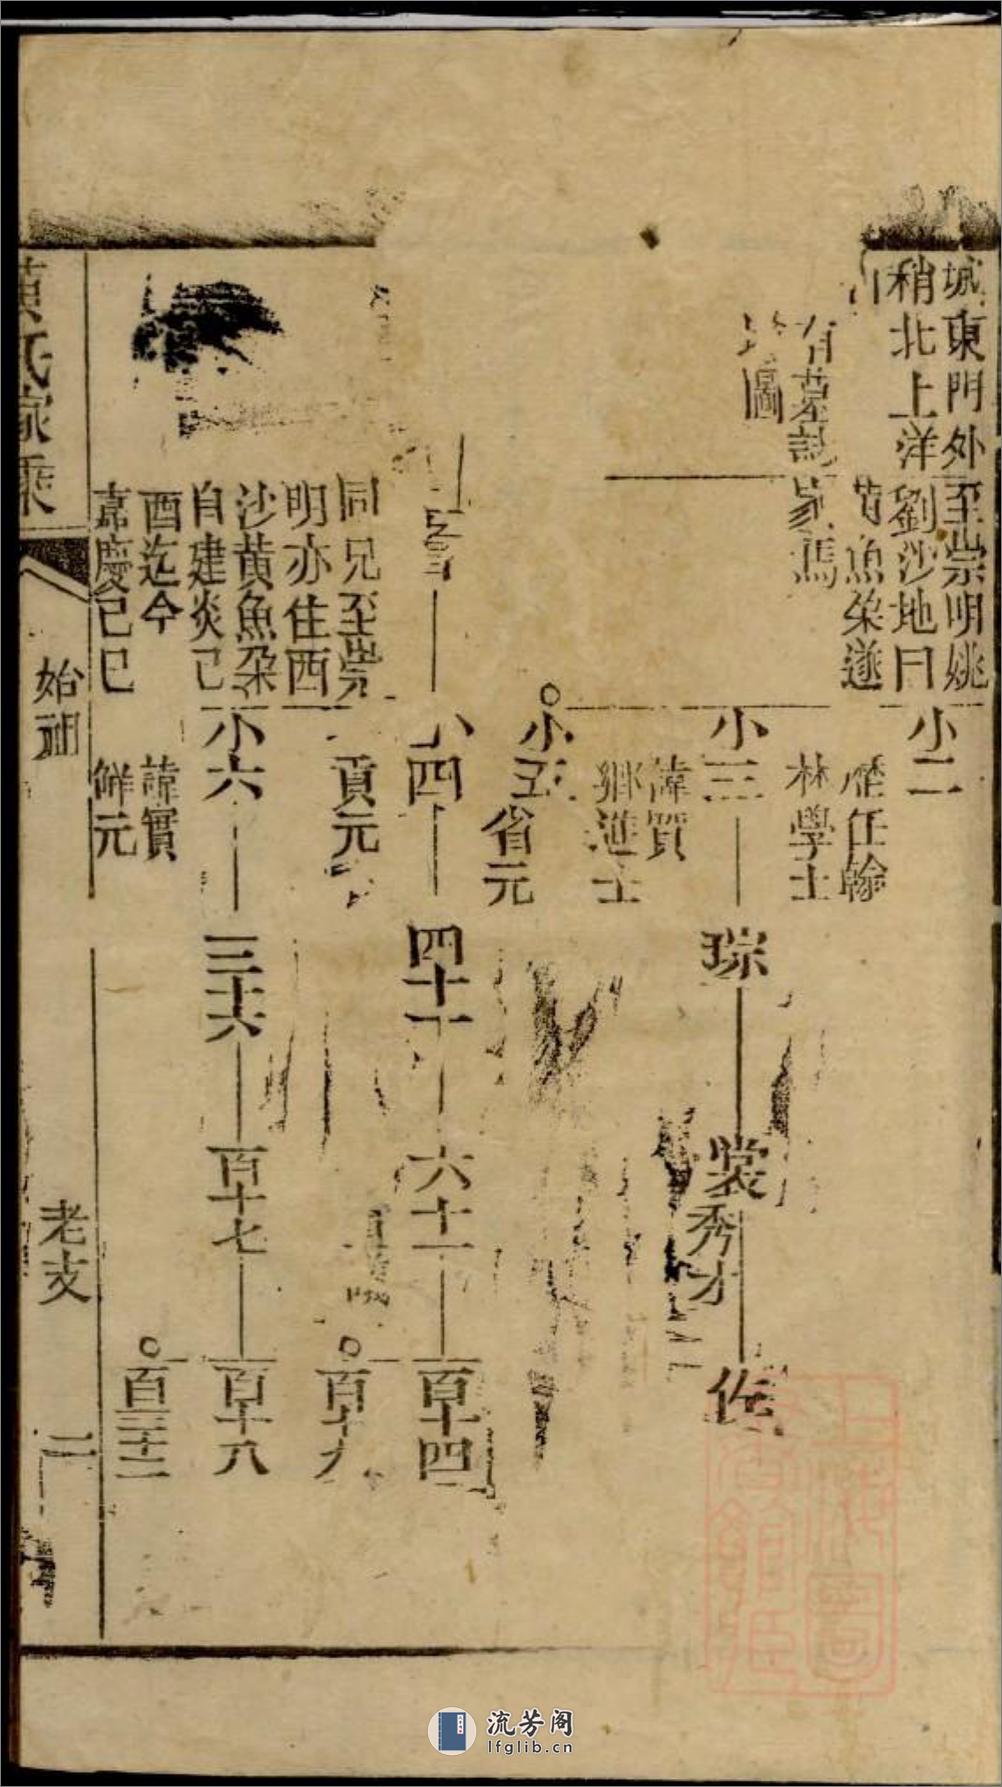 城東門外
稍北上洋
山
有墓誌
圖
至崇明姚
劉沙地曰
黃魚朶遂
家焉
小二
歷任翰
林學士
小三
琮
裳秀才
佐
諱賀
鄉進士
小五
省元
小四
四十一
六十一
百十四
貢元
百十九
同兄至崇
明亦住西
沙黃魚朶
自建炎己
酉迄今
嘉慶己巳
小六
三十六
百十七
百十八
諱實
解元
百三十二
氏家乘
始祖
老支
二
流芳阁
lfglib.cn